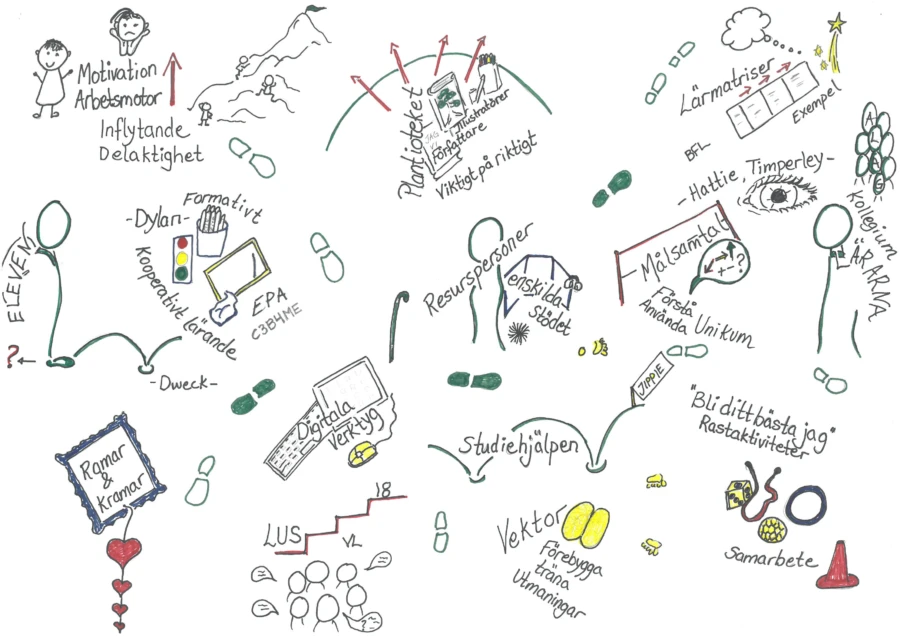 Motivation
Arbetsmotor
Inflytande
Delaktighet
Plantioteket
Illustratörer
Författare
Viktigt på riktigt
Lärmatriser
Exempel
BFL
-Hattie, Timperley-
ALLAS
Kollegium
LÄRARNA
ELEVEN
-Dylan-
Formativt
Kooperativt lärande
EPA
C3B4ME
?
-Dweck-
Resurspersoner
enskilda
Stödet
-Målsamtal
+-?
Förstå
Använda Unikum
JIPPIE
Digitala
Verktyg
Studiehjälpen
"Bli ditt bästa jag"
Rastaktiviteter
Samarbete
Ramar
&
Kramar
LUS
18
VL
Vektor
Förebygga
träna
Utmaningar